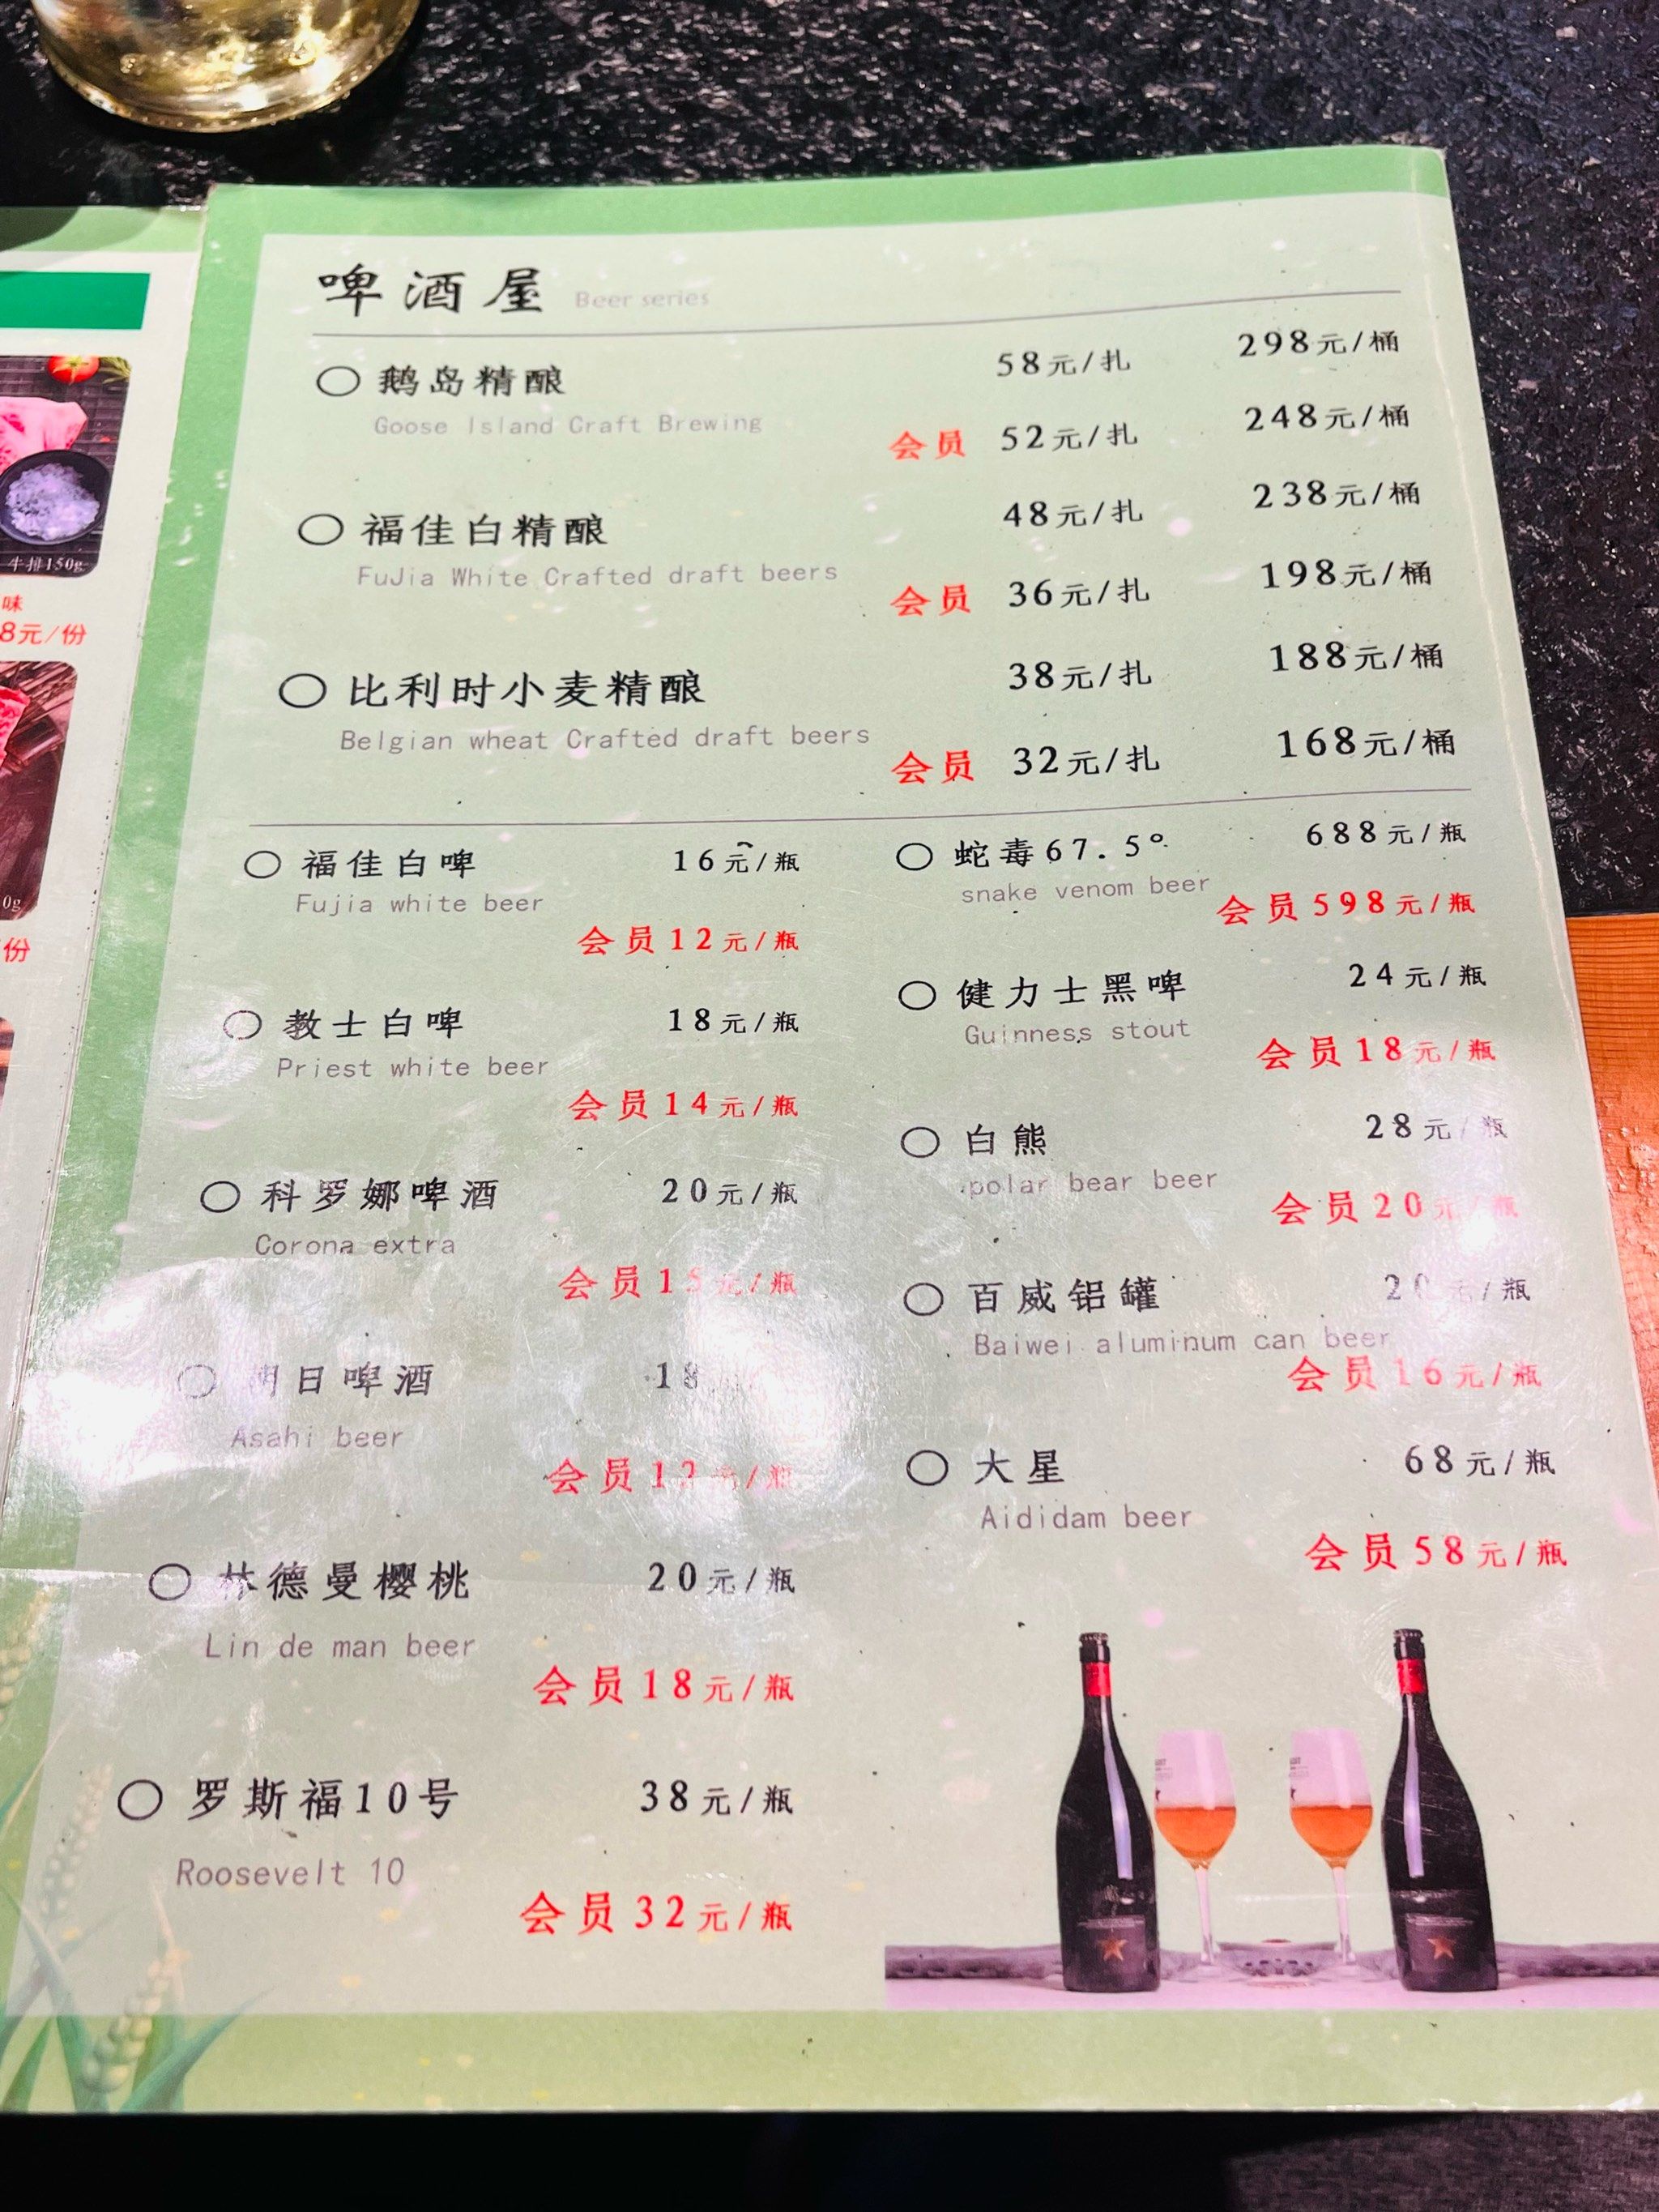 啤酒屋 Beer series
鹅岛精酿 58元/扎 298元/桶
Goose Island Craft Brewing
会员 52元/扎 248元/桶
福佳白精酿 48元/扎 238元/桶
FuJia White Crafted draft beers
会员 36元/扎 198元/桶
比利时小麦精酿 38元/扎 188元/桶
Belgian wheat Crafted draft beers
会员 32元/扎 168元/桶
福佳白啤 16元/瓶
Fujia white beer
会员12元/瓶
教士白啤 18元/瓶
Priest white beer
会员14元/瓶
科罗娜啤酒 20元/瓶
Corona extra
会员15元/瓶
日啤酒 18
Asahi beer
会员12元/瓶
林德曼樱桃 20元/瓶
Lin de man beer
会员18元/瓶
罗斯福10号 38元/瓶
Roosevelt 10
会员32元/瓶
蛇毒67.5° 688元/瓶
snake venom beer
会员598元/瓶
健力士黑啤 24元/瓶
Guinness stout
会员18元/瓶
白熊 28元/瓶
polar bear beer
会员20元/瓶
百威铝罐 20元/瓶
Baiwei aluminum can beer
会员16元/瓶
大星 68元/瓶
Aididam beer
会员58元/瓶
牛排150g
味
8元/份
0g
份